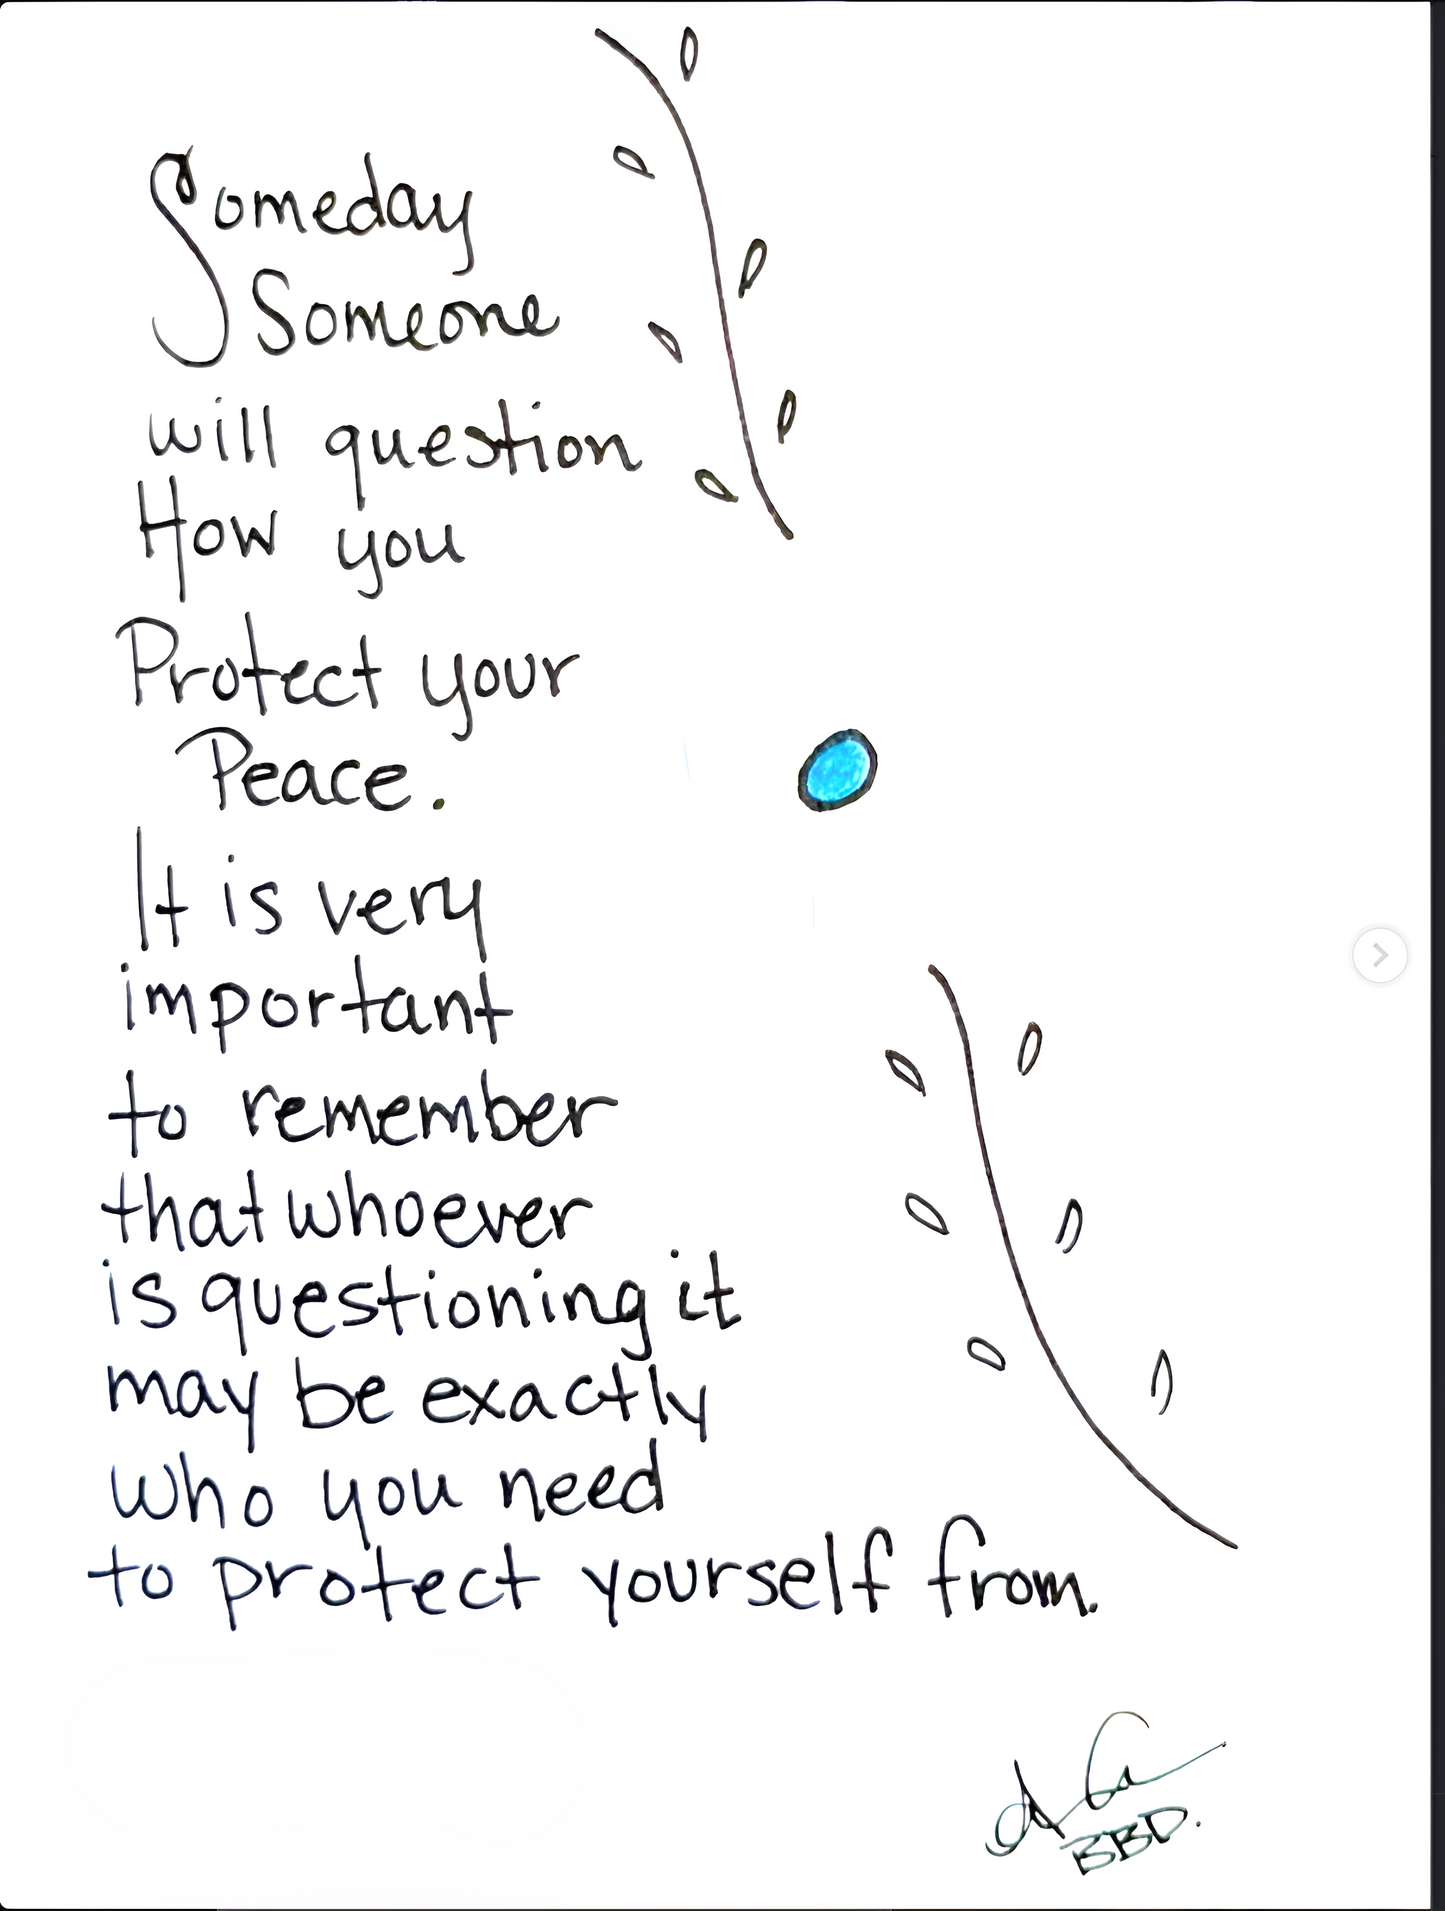 Someday
Someone
will question
How you
Protect your
Peace.
It is very
important
to remember
that whoever
is questioning it
may be exactly
who you need
to protect yourself from.
BBD.